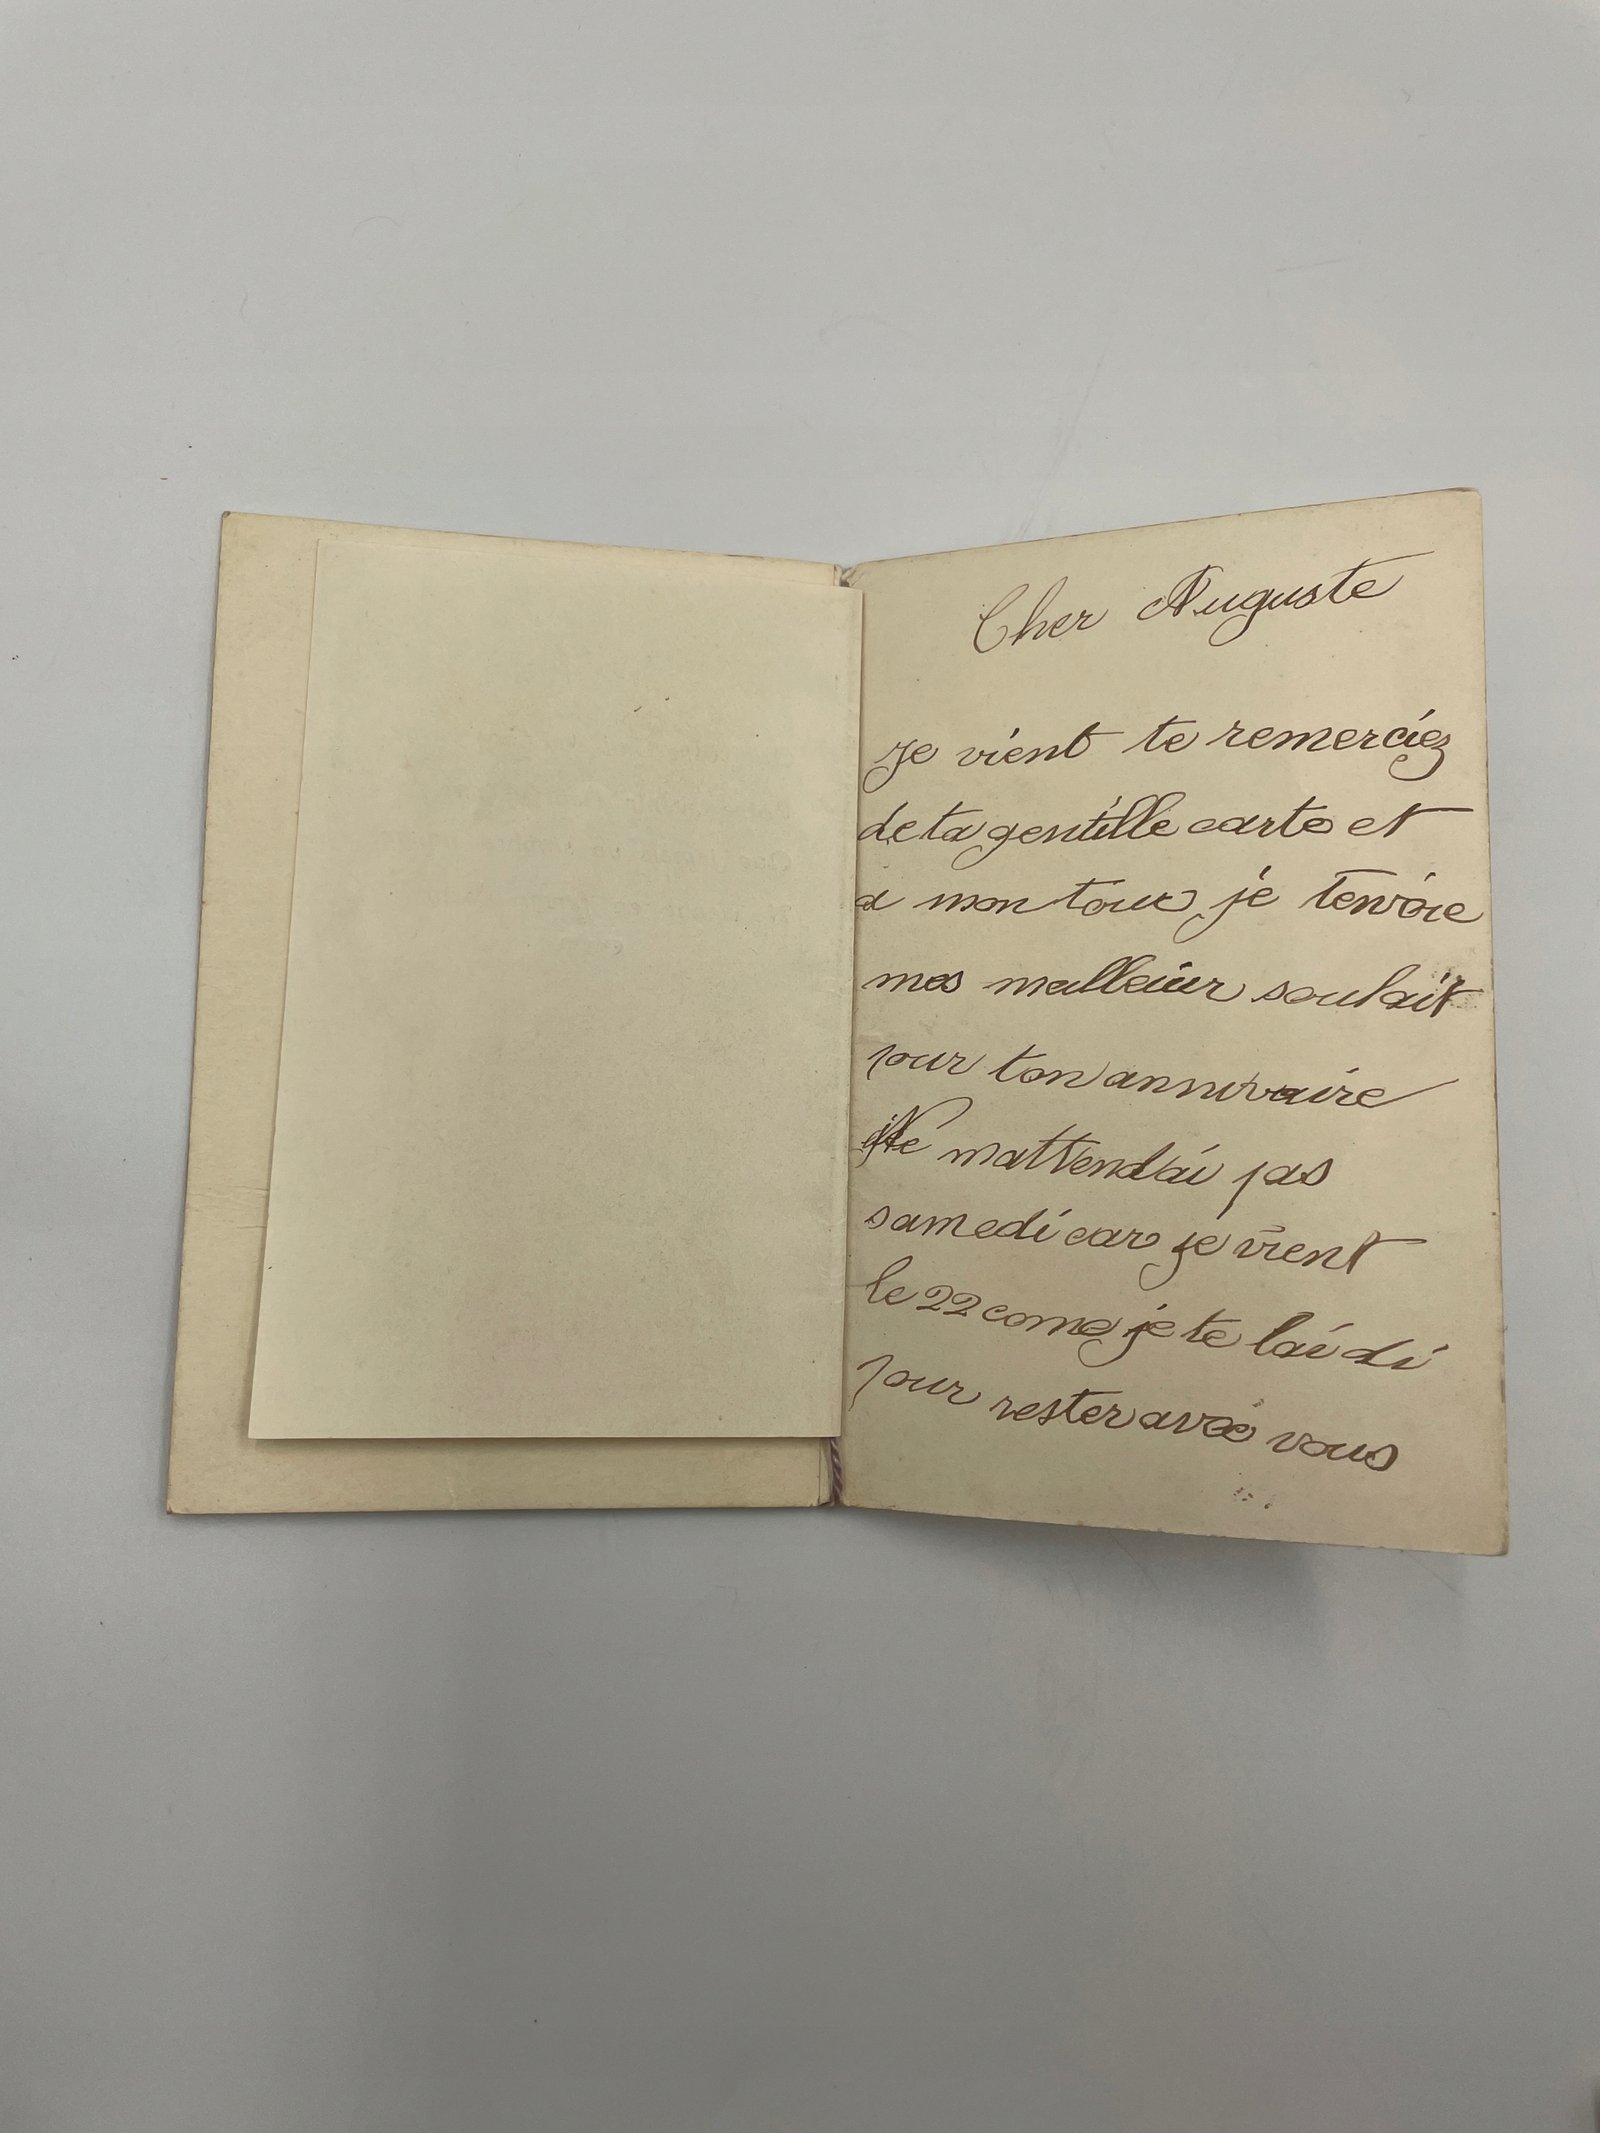 Cher Auguste
je vient te remerciez
de ta gentille carte et
a mon tour je tenvoie
mes malleiur souhait
pour ton annivaire
Ne mattendai pas
samedi car je vient
le 22 come je te lai di
pour rester avec vous